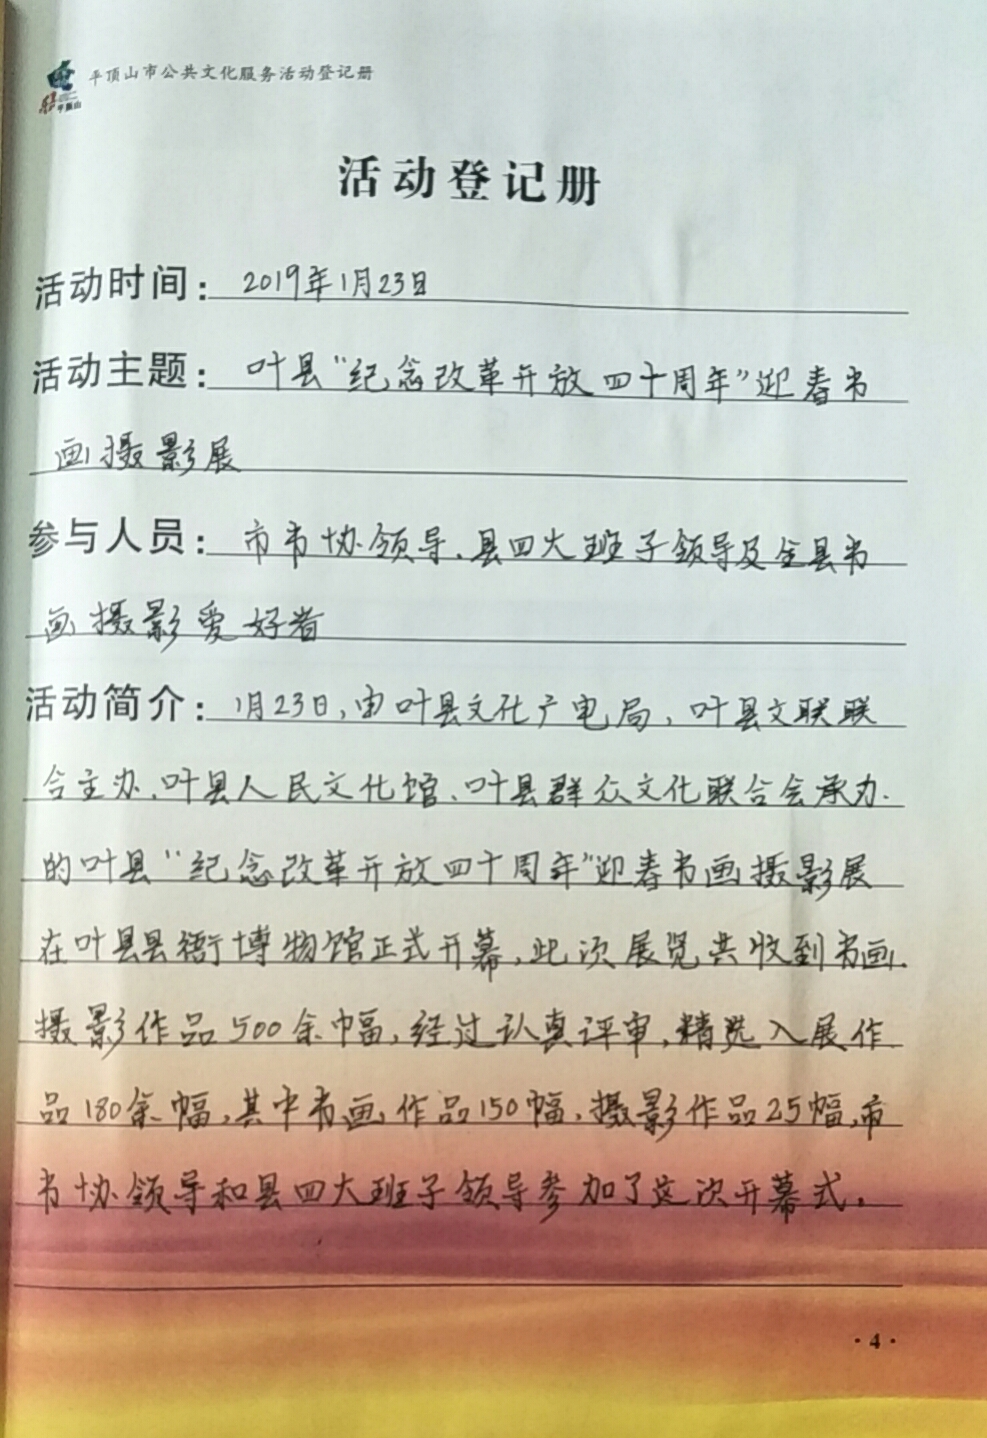 平顶山市公共文化服务活动登记册
平顶山
活动登记册
活动时间：2019年1月23日
活动主题：叶县“纪念改革开放四十周年”迎春书
画摄影展
参与人员：市书协领导、县四大班子领导及全县书
画摄影爱好者
活动简介：1月23日，由叶县文化广电局，叶县文联联
合主办、叶县人民文化馆、叶县群众文化联合会承办.
的叶县“纪念改革开放四十周年”迎春书画摄影展
在叶县县衙博物馆正式开幕，此次展览共收到书画.
摄影作品500余幅，经过认真评审，精选入展作
品180余幅，其中书画作品150幅，摄影作品25幅，市
书协领导和县四大班子领导参加了这次开幕式。
·4·